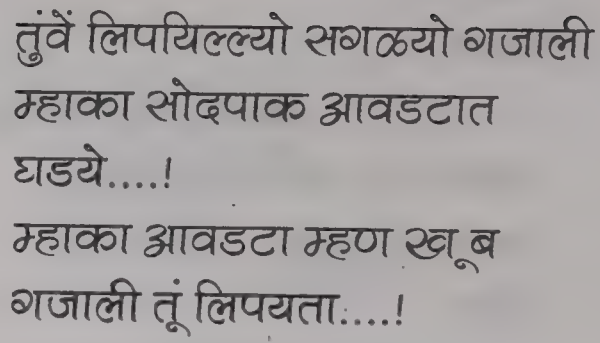 तुंवें लिपयिल्ल्यो सगळ्यो गजाली
म्हाका सोदपाक आवडटात
घडये....!
म्हाका आवडटा म्हण खूब
गजाली तूं लिपयता....!